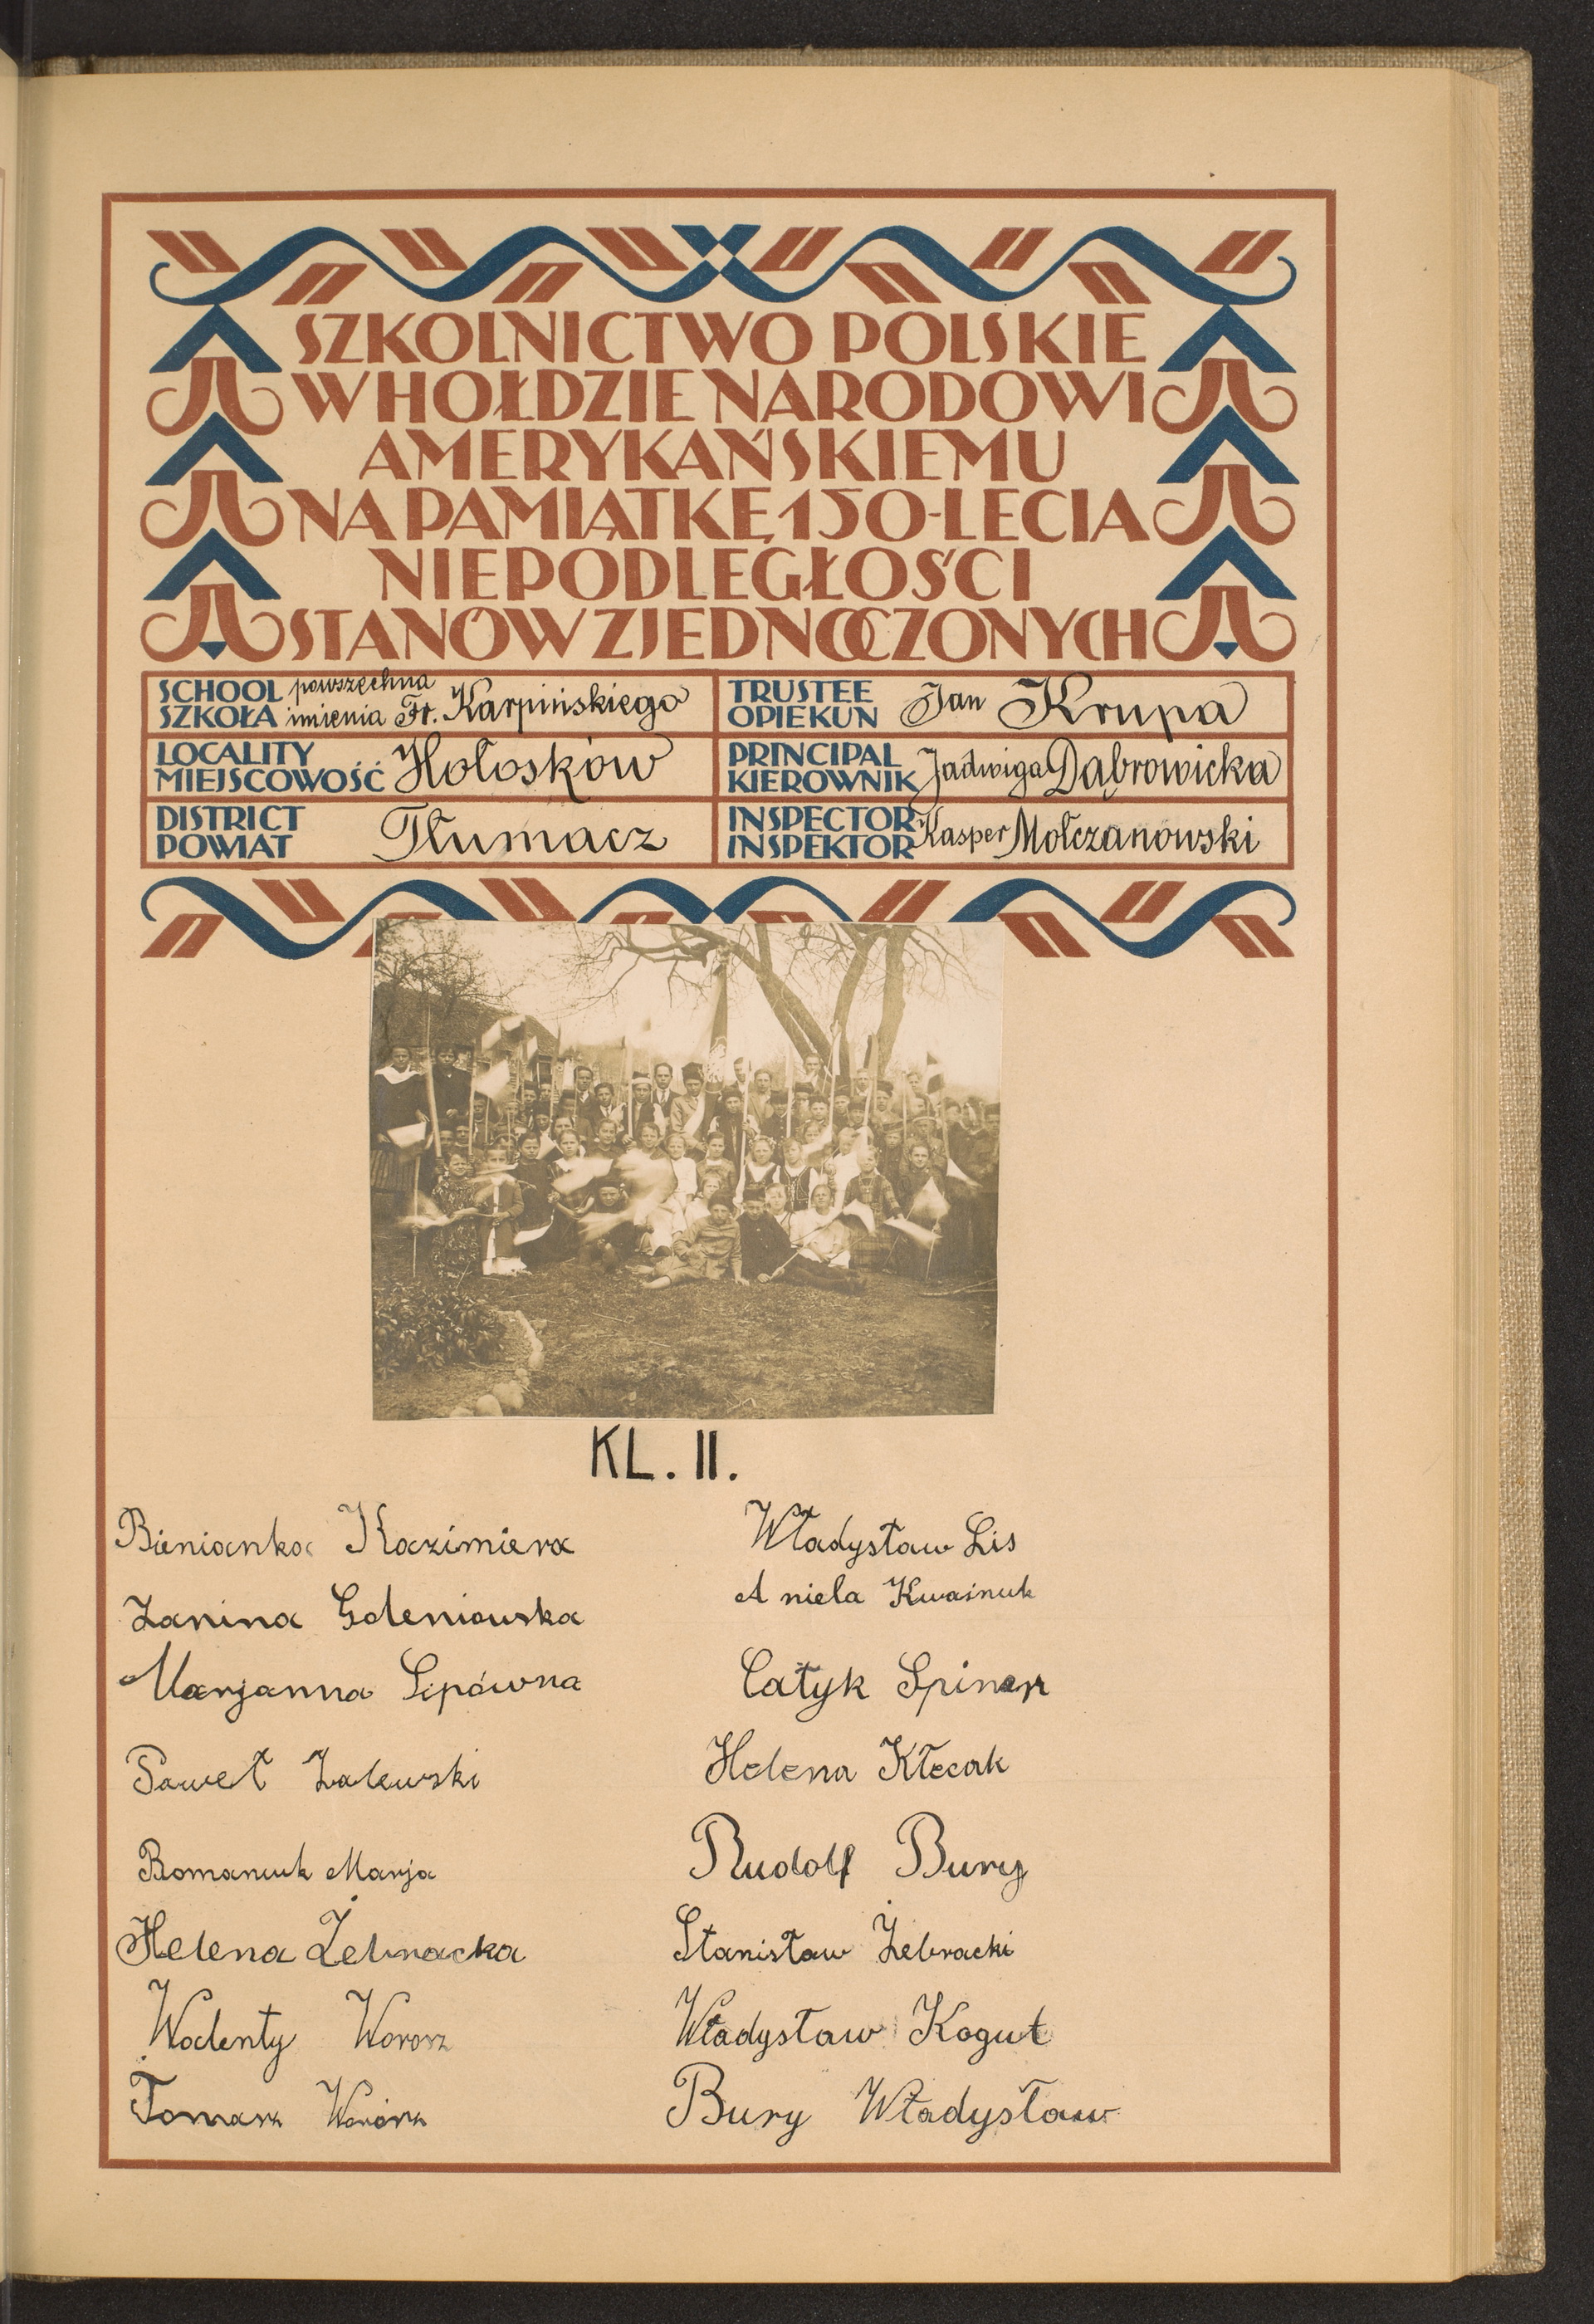 SZKOLNICTWO POLSKIE
W HOŁDZIE NARODOWI
AMERYKAŃSKIEMU
NA PAMIĄTKĘ 150-LECIA
NIEPODLEGŁOŚCI
STANÓW ZJEDNOCZONYCH
SCHOOL powszechna
SZKOŁA imienia Fr. Karpińskiego
TRUSTEE
OPIEKUN Jan Krupa
LOCALITY
MIEJSCOWOŚĆ Hołosków
PRINCIPAL
KIEROWNIK Jadwiga Dąbrowicka
DISTRICT
POWIAT Tłumacz
INSPECTOR
INSPEKTOR Kasper Mołczanowski
KL. II.
Bienianka Kazimiera
Janina Goleniowska
Marjanna Lipówna
Paweł Zalewski
Romaniuk Marja
Helena Żebracka
Walenty Worosz
Tomasz
Władysław Lis
Aniela Kwaśniuk
Całyk Spiner
Helena Kłecak
Rudolf Bury
Stanisław Żebracki
Władysław Kogut
Bury Władysław